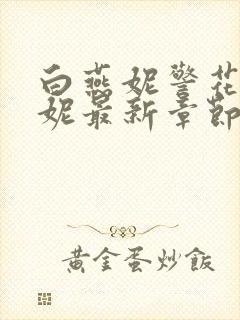 白燕妮警花
妮最新章節
黃金蛋炒飯